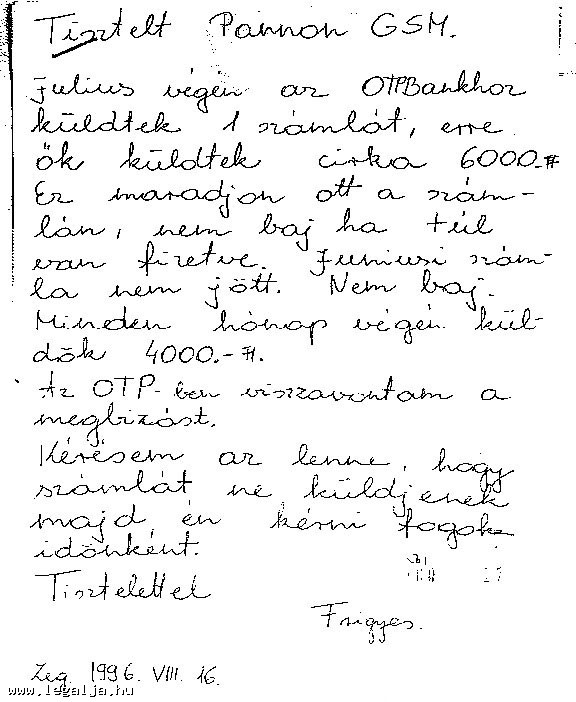 Tisztelt Pannon GSM.
Julius végén az OTPBankhoz
küldtek 1 számlát, erre
ők küldtek cirka 6000.-Ft
Ez maradjon ott a szám-
lán, nem baj ha túl
van fizetve. Juniusi szám-
la nem jött. Nem baj.
Minden hónap végén kül-
dök 4000.-Ft.
Az OTP-ben visszavontam a
megbizást.
Kérésem az lenne, hogy
számlát ne küldjenek
majd én kérni fogok
időnként.
Tisztelettel
Frigyes.
Zeg. 1996. VIII. 16.
www.legalja.hu